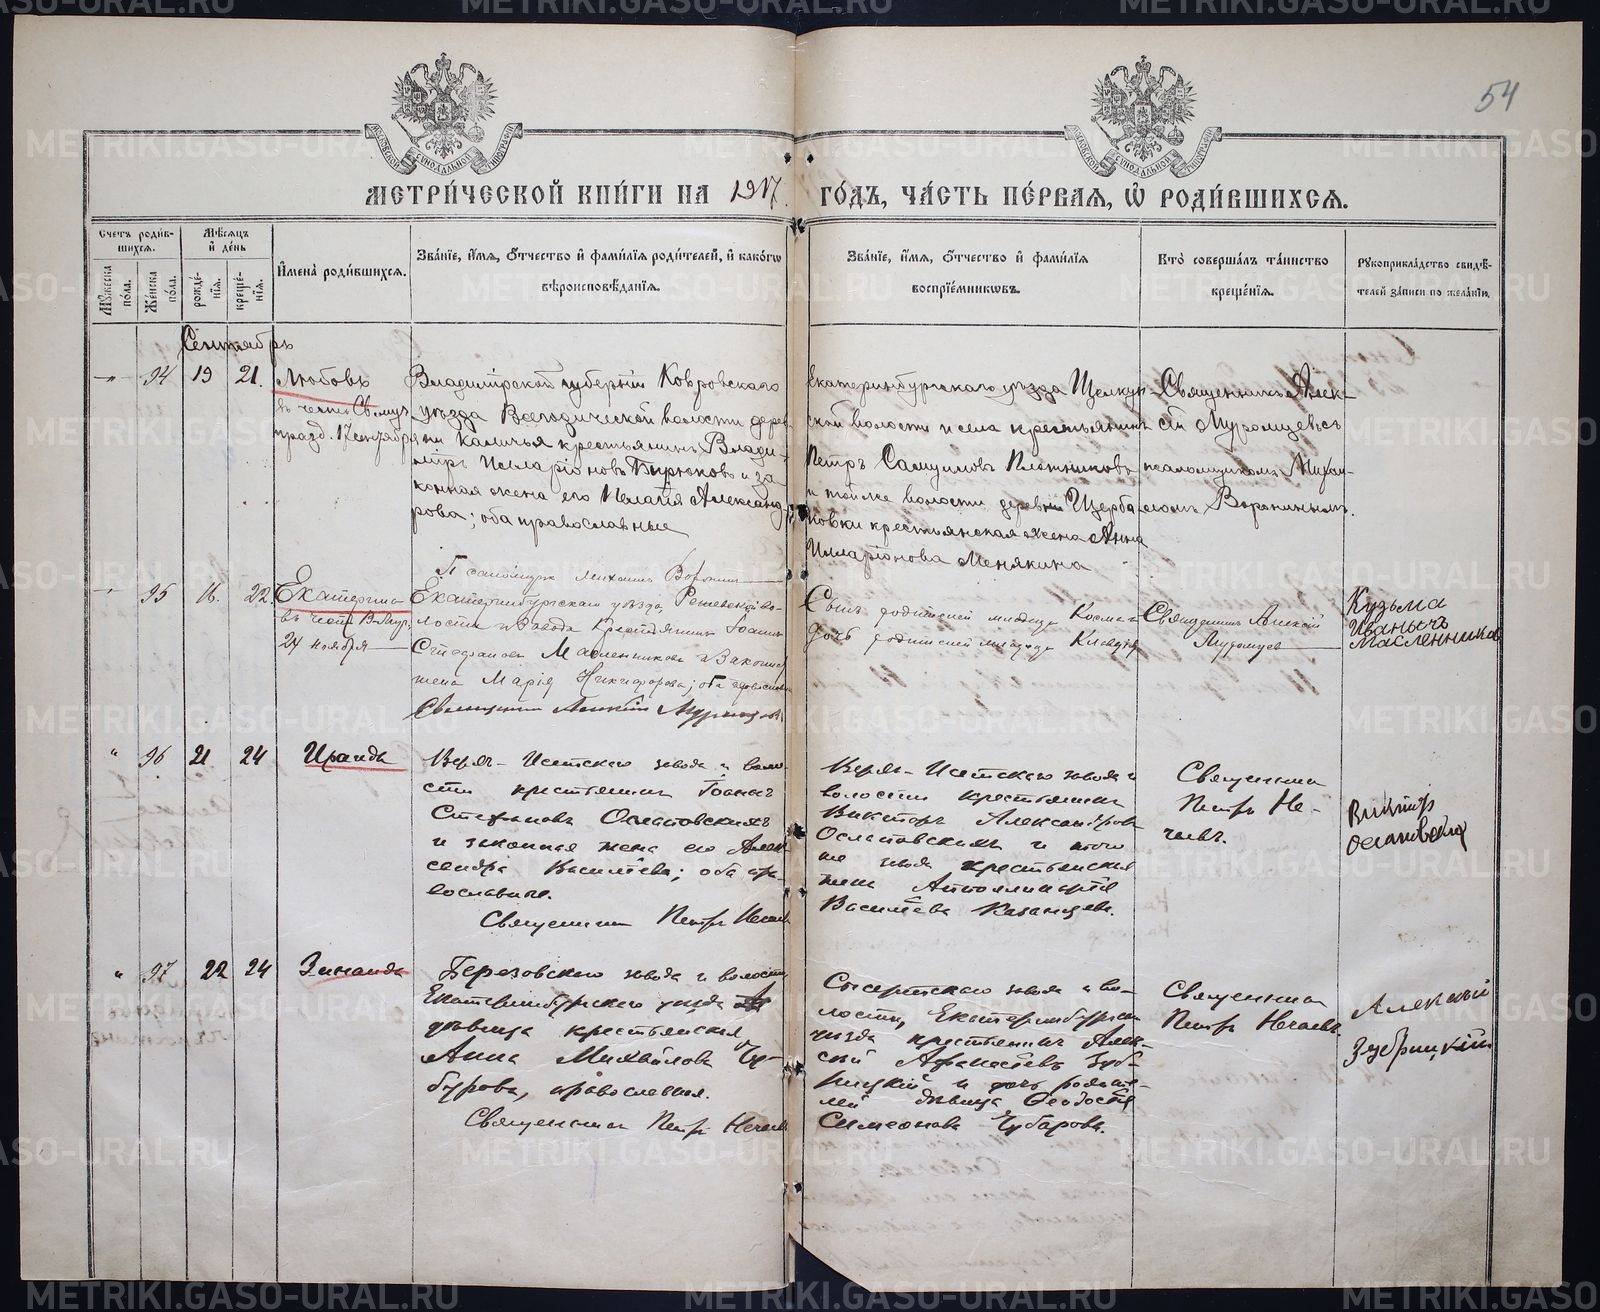 54
МЕТРИ́ЧЕСКОЙ КНИ́ГИ НА 1917 ГО́ДЪ, ЧА́СТЬ ПЕ́РВАЯ, Ѡ҆ РОДИ́ВШИХСЯ.
Счетъ роди́вшихся.
Му́жеска по́ла.
Же́нска по́ла.
Мѣ́сяцъ и҆ де́нь
рожде́нїя.
креще́нїя.
И҆мена̀ роди́вшихся.
Зва́нїе, и҆́мя, ѻ҆́тчество и҆ фами́лїя роди́телей, и҆ како́гѡ
вѣроисповѣ́данїя.
Зва́нїе, и҆́мя, ѻ҆́тчество и҆ фами́лїя
воспрїе́мникѡвъ.
Кто̀ соверша́лъ та́инство
креще́нїя.
Рукоприкла́дство свидѣ́-
телей за́писи по жела́нїю.
Сентябрь
94 19 21.
Любовь
въ честь Св. муч.
празд. 17 сентября
Владимірской губерніи Ковровскаго
уѣзда Всегодической волости дерев-
ни Каличья крестьянинъ Влади-
міръ Илларіоновъ Бирюковъ и за-
конная жена его Пелагія Александ-
рова; оба православные
Псаломщик Михаилъ Воронин
Екатеринбургскаго уѣзда Щелкун-
ской волости и села крестьянинъ
Петръ Самуиловъ Плотниковъ
и той же волости деревни Щерба-
ковки крестьянская жена Анна
Илларіонова Менякина
Священникъ Алек-
сій Муромцевъ с
псаломщикомъ Миха-
иломъ Воронинымъ.
95 16. 22.
Екатерина
въ честь В-муч.
24 ноября
Екатеринбургскаго уѣзда, Режевской во-
лости и завода крестьянинъ Іоаннъ
Стефановъ Масленниковъ и законная
жена Марія Никифорова; оба православн
Священник Алексій Муромцевъ
Сынъ родителей младецъ Косма и
дочь родителей Клавдія
Священникъ Алексій
Муромцев
Кузьма
Иваныч
Масленников
" 96 21. 24
Ираида
Верхъ-Исетскаго завода и воло-
сти крестьянинъ Іоаннъ
Стефановъ Осиповскихъ
и законная жена его Алек-
сандра Васильева; оба пра-
вославные.
Священникъ Петръ Нечаев
Верхъ-Исетскаго завода и
волости крестьянинъ
Викторъ Александровъ
и того
же завода крестьянская
жена Апполинарія
Васильева Казанцева.
Священникъ
Петръ Не-
чаевъ.
Викторъ
" 97 22 24
Зинаида
Березовскаго завода и волости
Екатеринбургскаго уѣзда
дѣвица крестьянская
Анна Михайлова Чу-
бурова, православная.
Священникъ Петръ Нечаев
Сысертскаго завода и во-
лости, Екатеринбургск.
уѣзда крестьянинъ Алек-
сѣй Афанасьевъ Зуб-
рицкій и дочь родите-
лей дѣвица Ѳеодосія
Симеонова Чубарова.
Священникъ
Петръ Нечаевъ.
Алексѣй
Зубрицкій